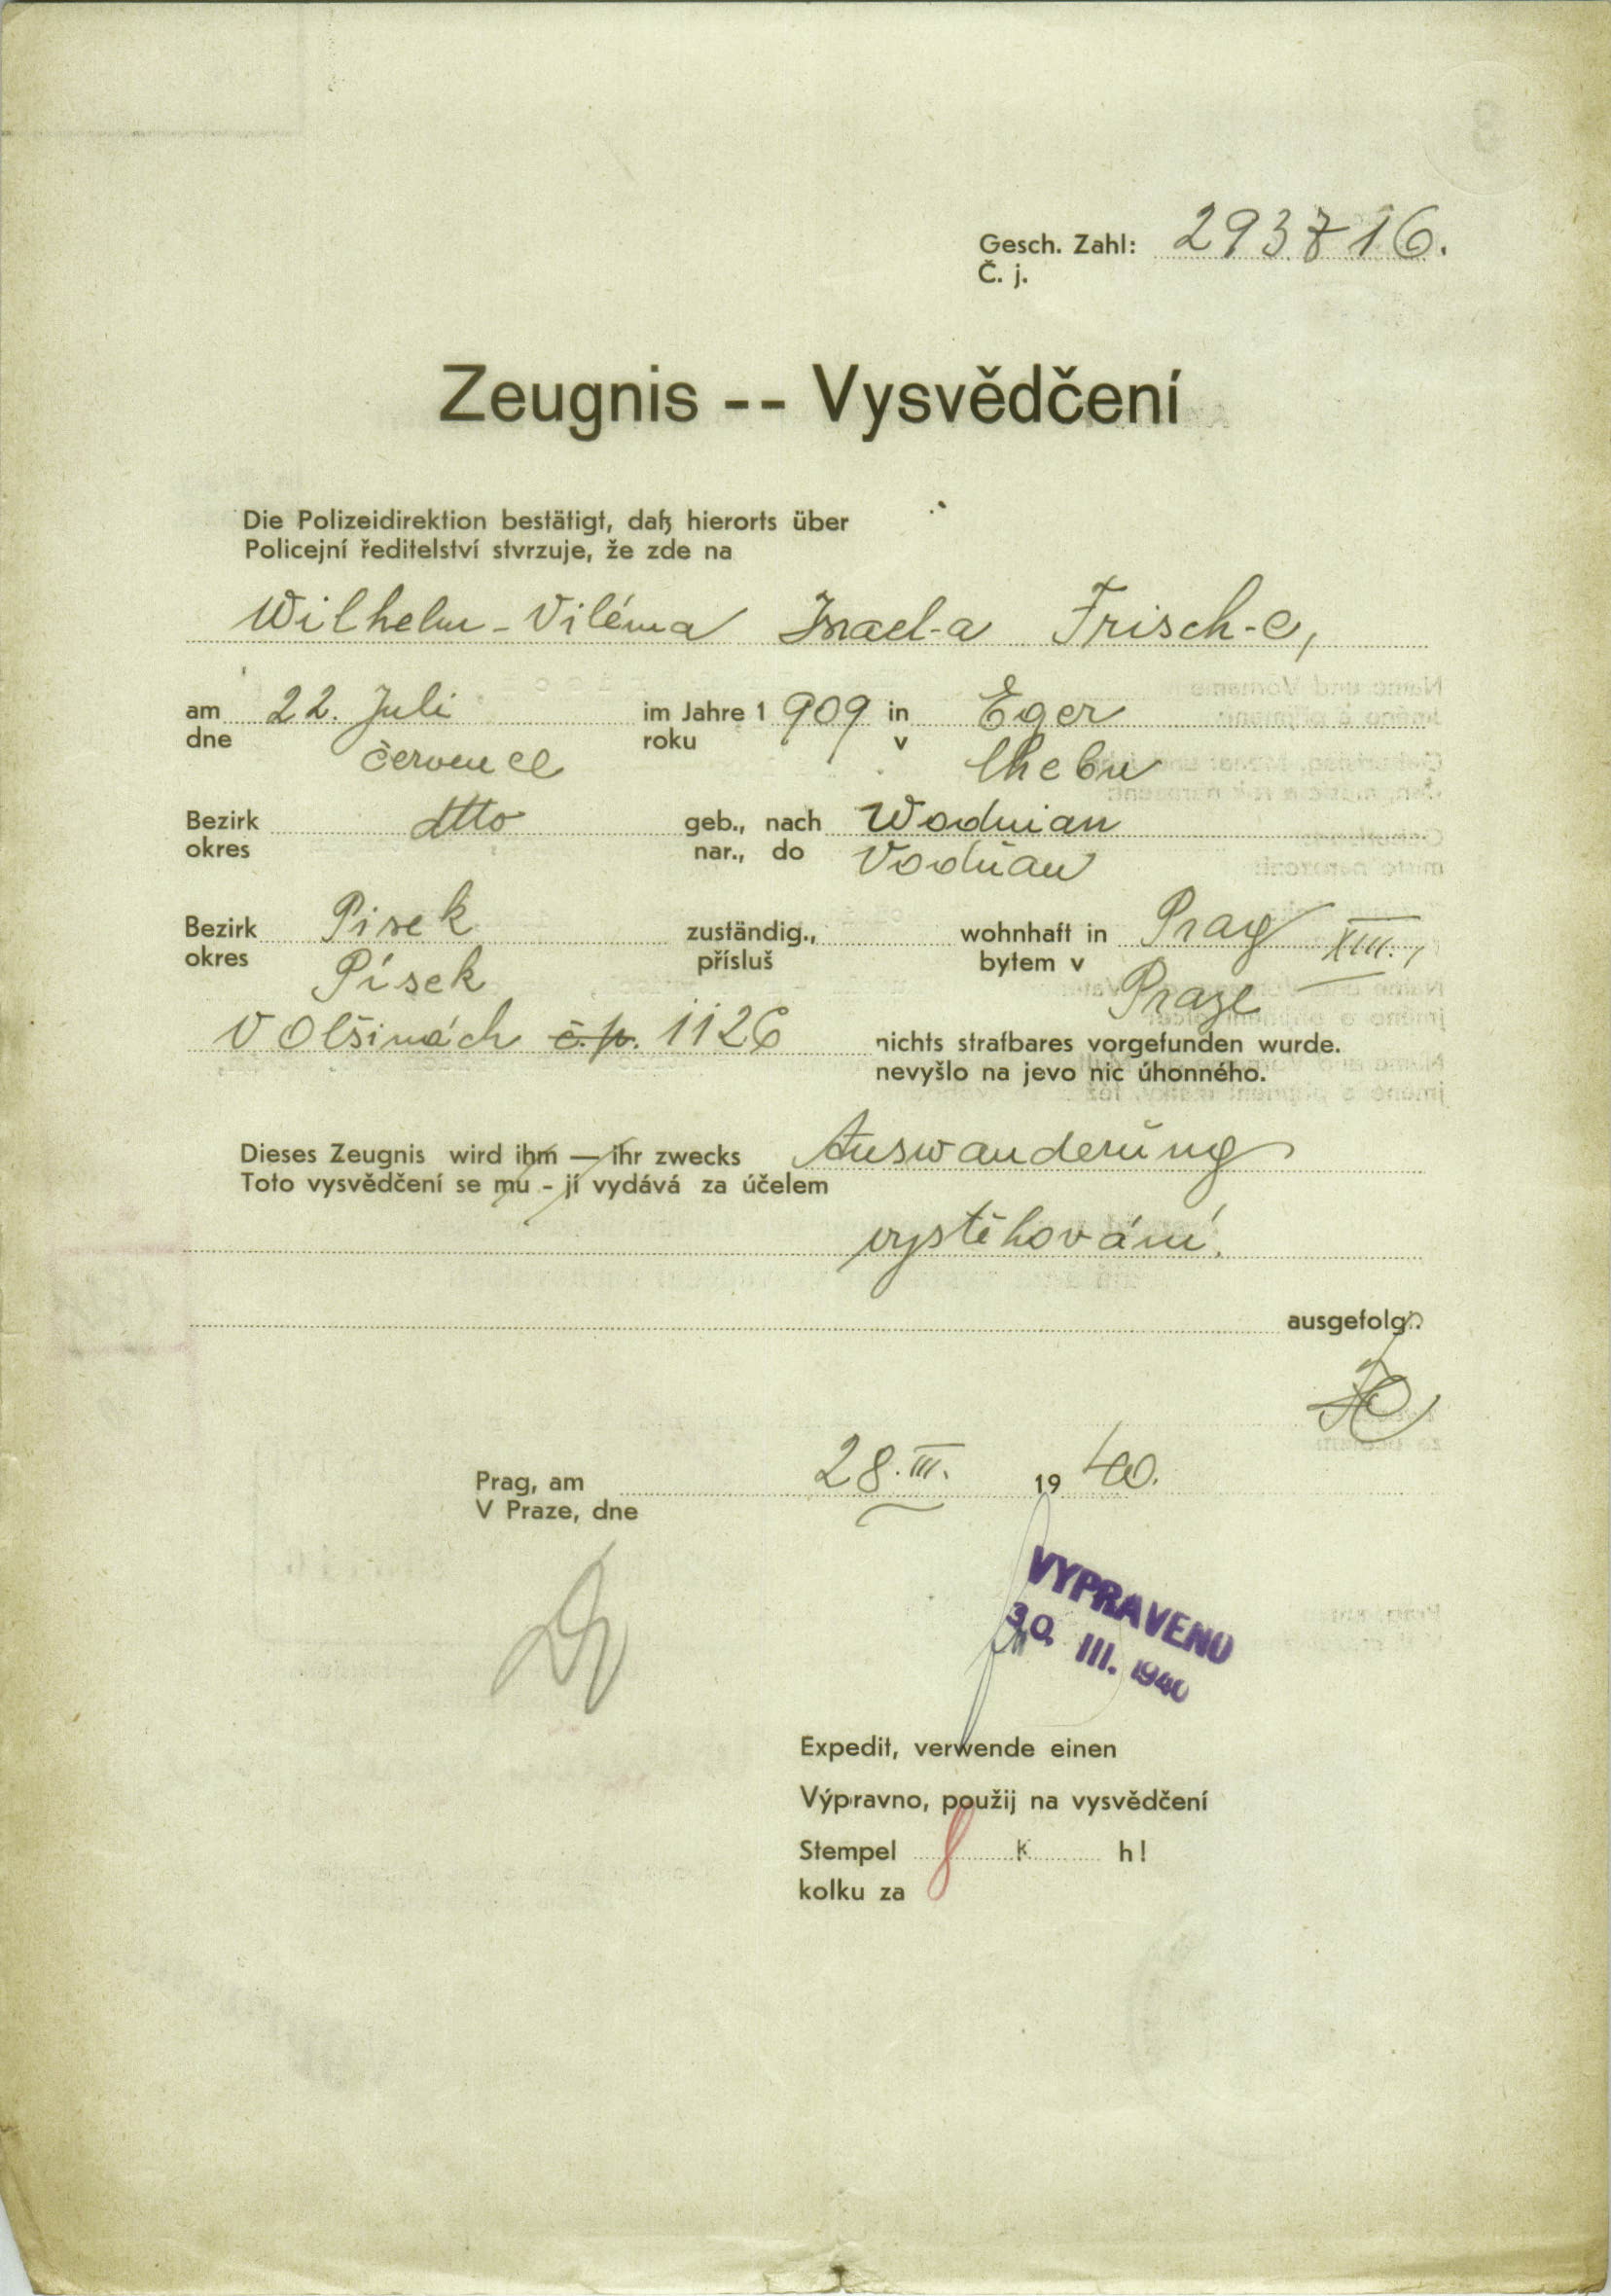 Gesch. Zahl: 293716.
Č. j.
Zeugnis -- Vysvědčení
Die Polizeidirektion bestätigt, daß hierorts über
Policejní ředitelství stvrzuje, že zde na
Wilhelm - Viléma Israel-a Frisch-e,
am 22. Juli im Jahre 1 909 in Eger
dne července roku v Chebu
Bezirk dtto geb., nach Wodnian
okres nar., do Vodňan
Bezirk Pisek zuständig., wohnhaft in Prag XIII.,
okres Písek přísluš bytem v Praze
V Olšinách č.p. 1126 nichts strafbares vorgefunden wurde.
nevyšlo na jevo nic úhonného.
Dieses Zeugnis wird ihm — ihr zwecks Auswanderung
Toto vysvědčení se mu - jí vydává za účelem
vystěhování.
ausgefolgt.
Prag, am 28. III. 19 40.
V Praze, dne
VYPRAVENO
30. III. 1940
Expedit, verwende einen
Výpravno, použij na vysvědčení
Stempel 8 K h!
kolku za